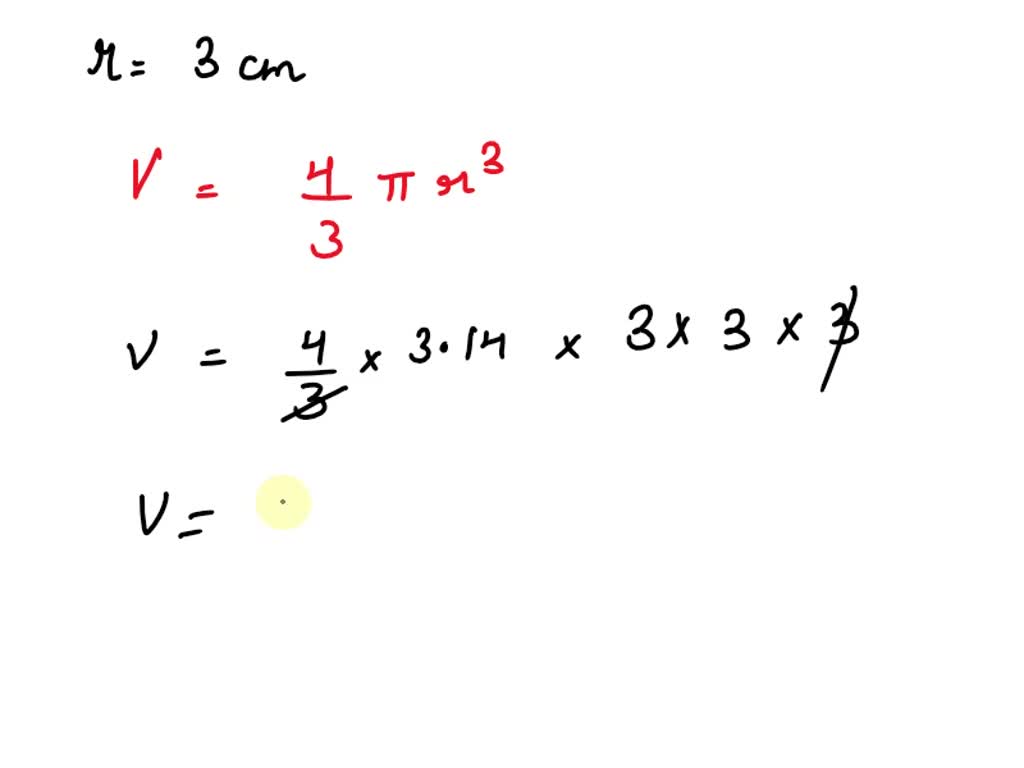 r = 3 cm
V = 4/3 π r³
V = 4/3 × 3.14 × 3 × 3 × 3
V =